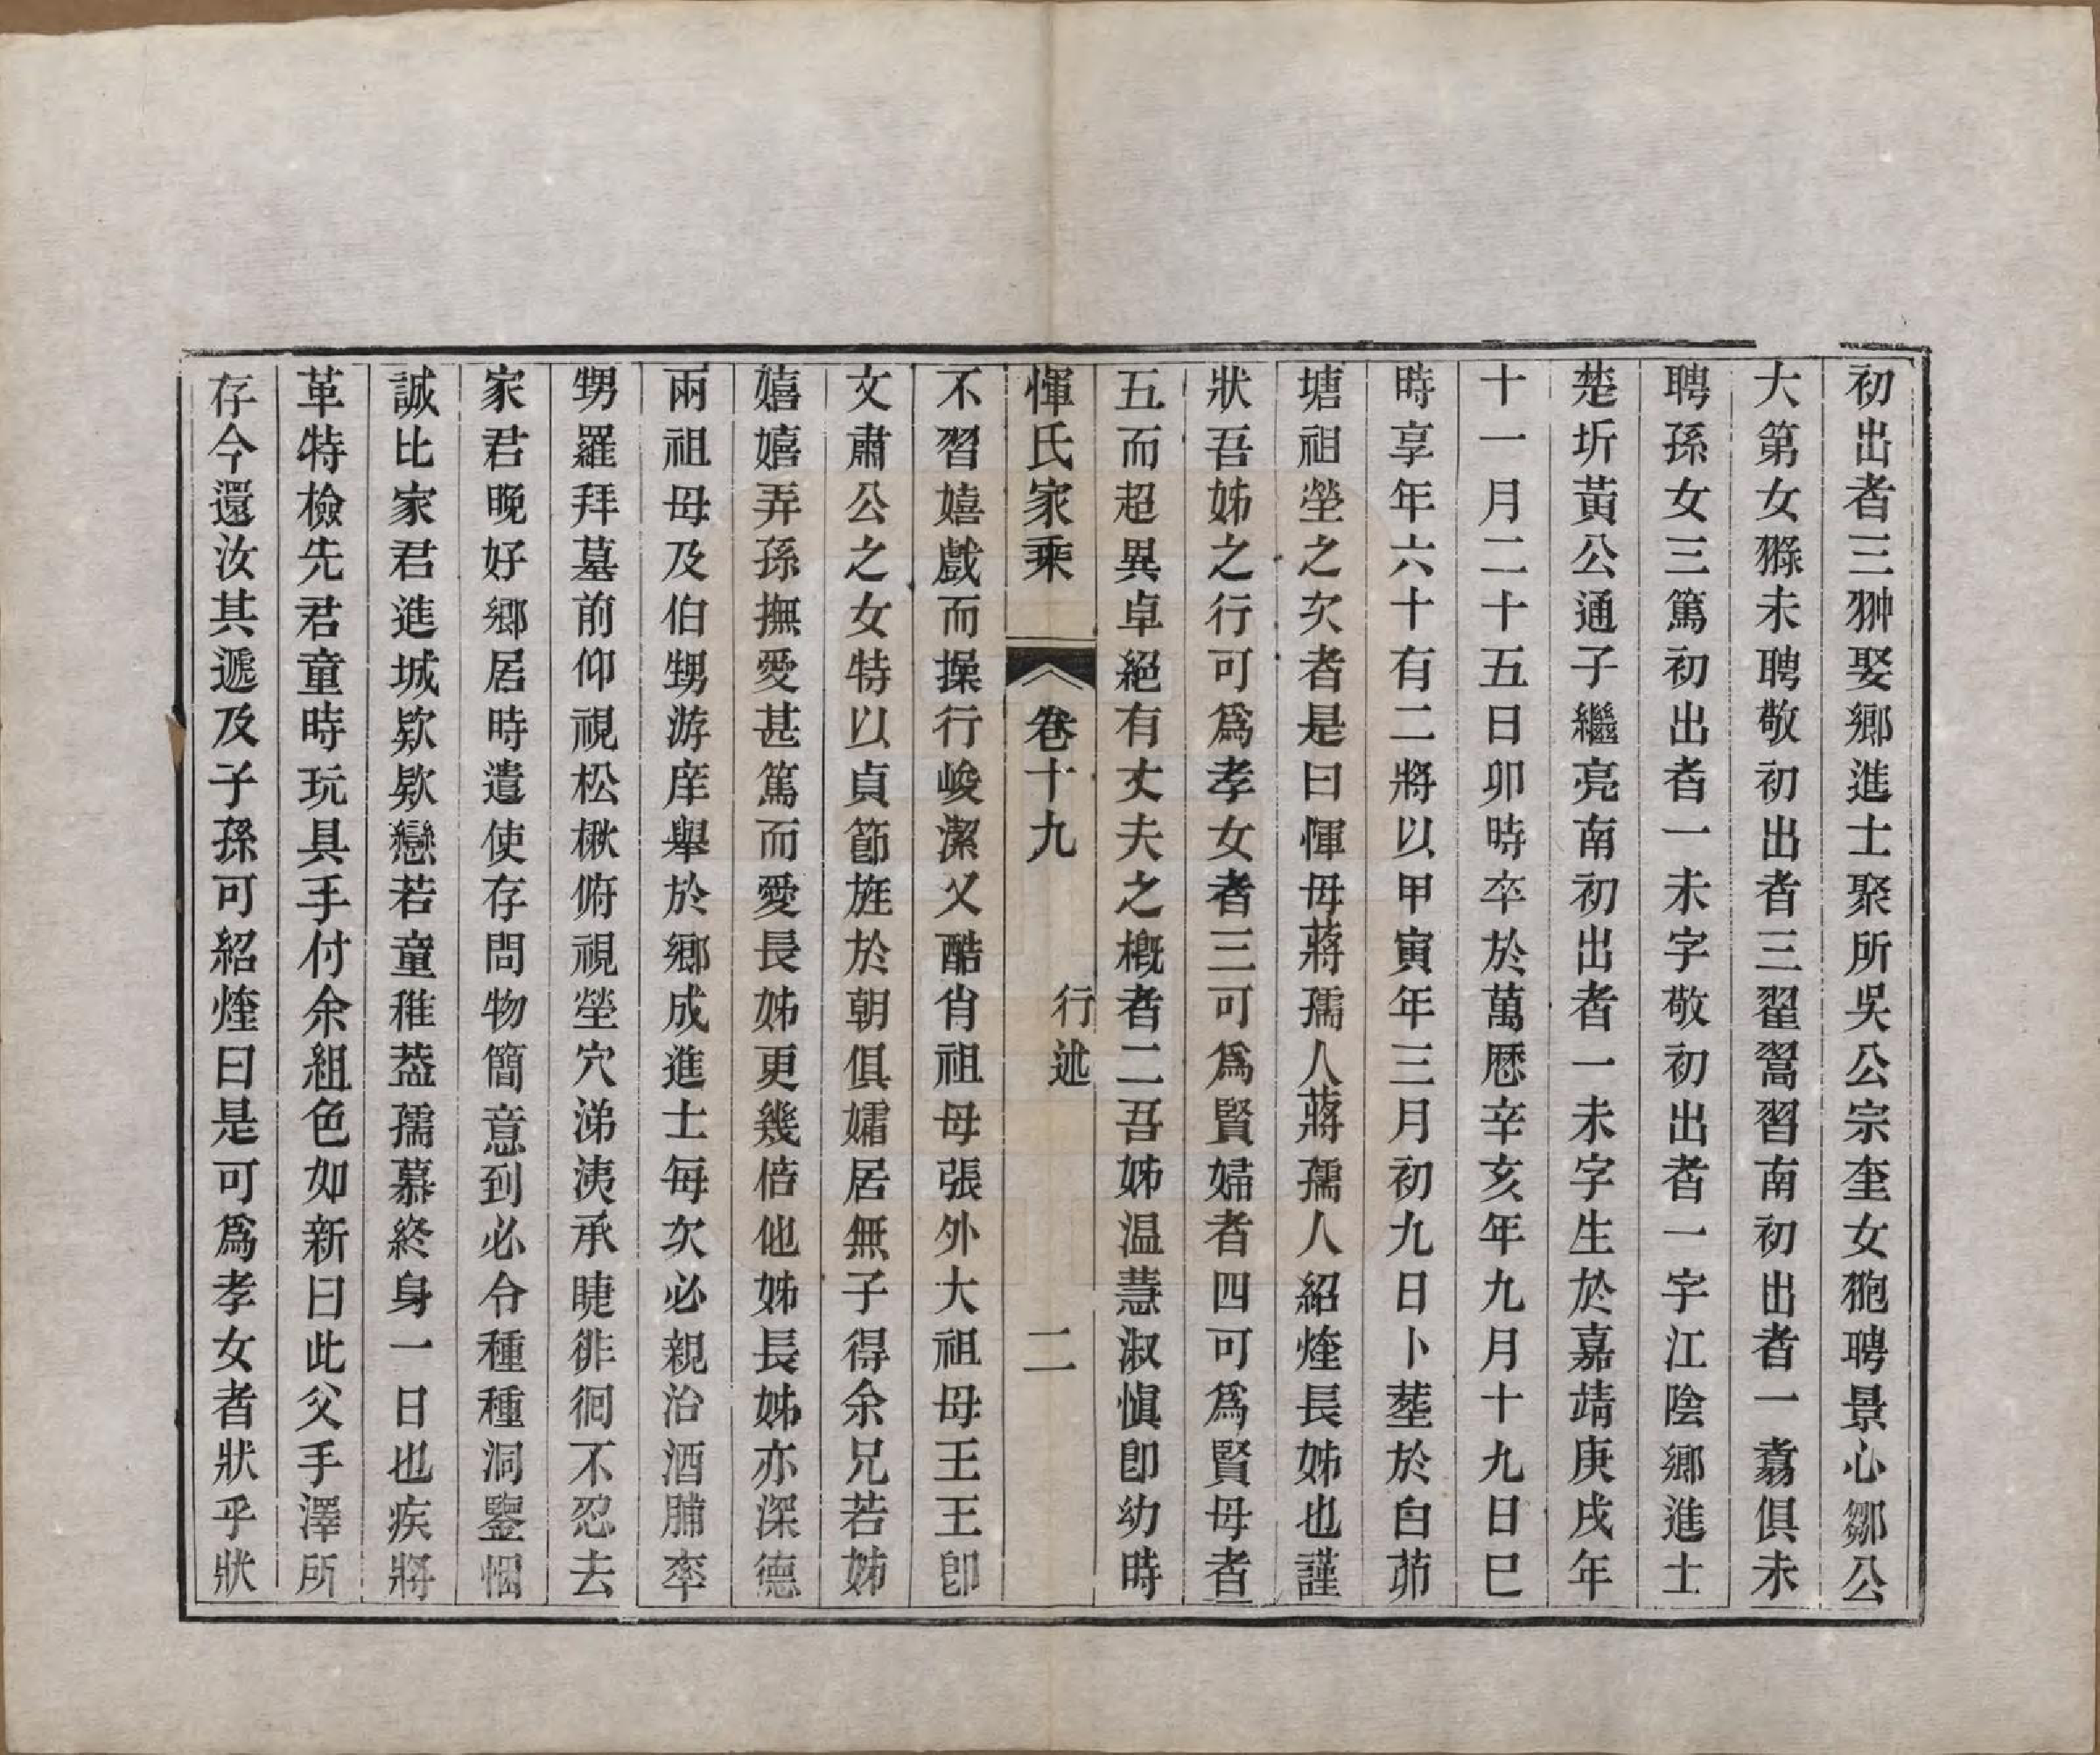 初出者三翀娶鄉進士聚所吳公宗奎女㚿聘景心鄒公
大第女䍺未聘敬初出者三翟翯習南初出者一翥俱未
聘孫女三篤初出者一未字敬初出者一字江陰鄉進士
楚圻黃公通子繼亮南初出者一未字生於嘉靖庚戌年
十一月二十五日卯時卒於萬歷辛亥年九月十九日巳
時享年六十有二將以甲寅年三月初九日卜塟於白茆
塘祖塋之次者是曰惲母蔣孺人蔣孺人紹煃長姊也謹
狀吾姊之行可爲孝女者三可爲賢婦者四可爲賢母者
五而超異卓絕有丈夫之槪者二吾姊温慧淑愼卽幼時
惲氏家乘 卷十九 行述 二
不習嬉戲而操行峻潔又酷肖祖母張外大祖母王王卽
文肅公之女特以貞節旌於朝俱孀居無子得余兄若姊
嬉嬉弄孫撫愛甚篤而愛長姊更幾倍他姊長姊亦深德
兩祖母及伯甥游庠舉於鄉成進士每次必親治酒脯率
甥羅拜墓前仰視松楸俯視塋穴涕洟承睫徘徊不忍去
家君晚好鄉居時遣使存問物簡意到必令種種洞鑒悃
誠比家君進城欵欵戀若童稚葢孺慕終身一日也疾將
革特檢先君童時玩具手付余組色如新曰此父手澤所
存今還汝其遞及子孫可紹煃曰是可爲孝女者狀乎狀